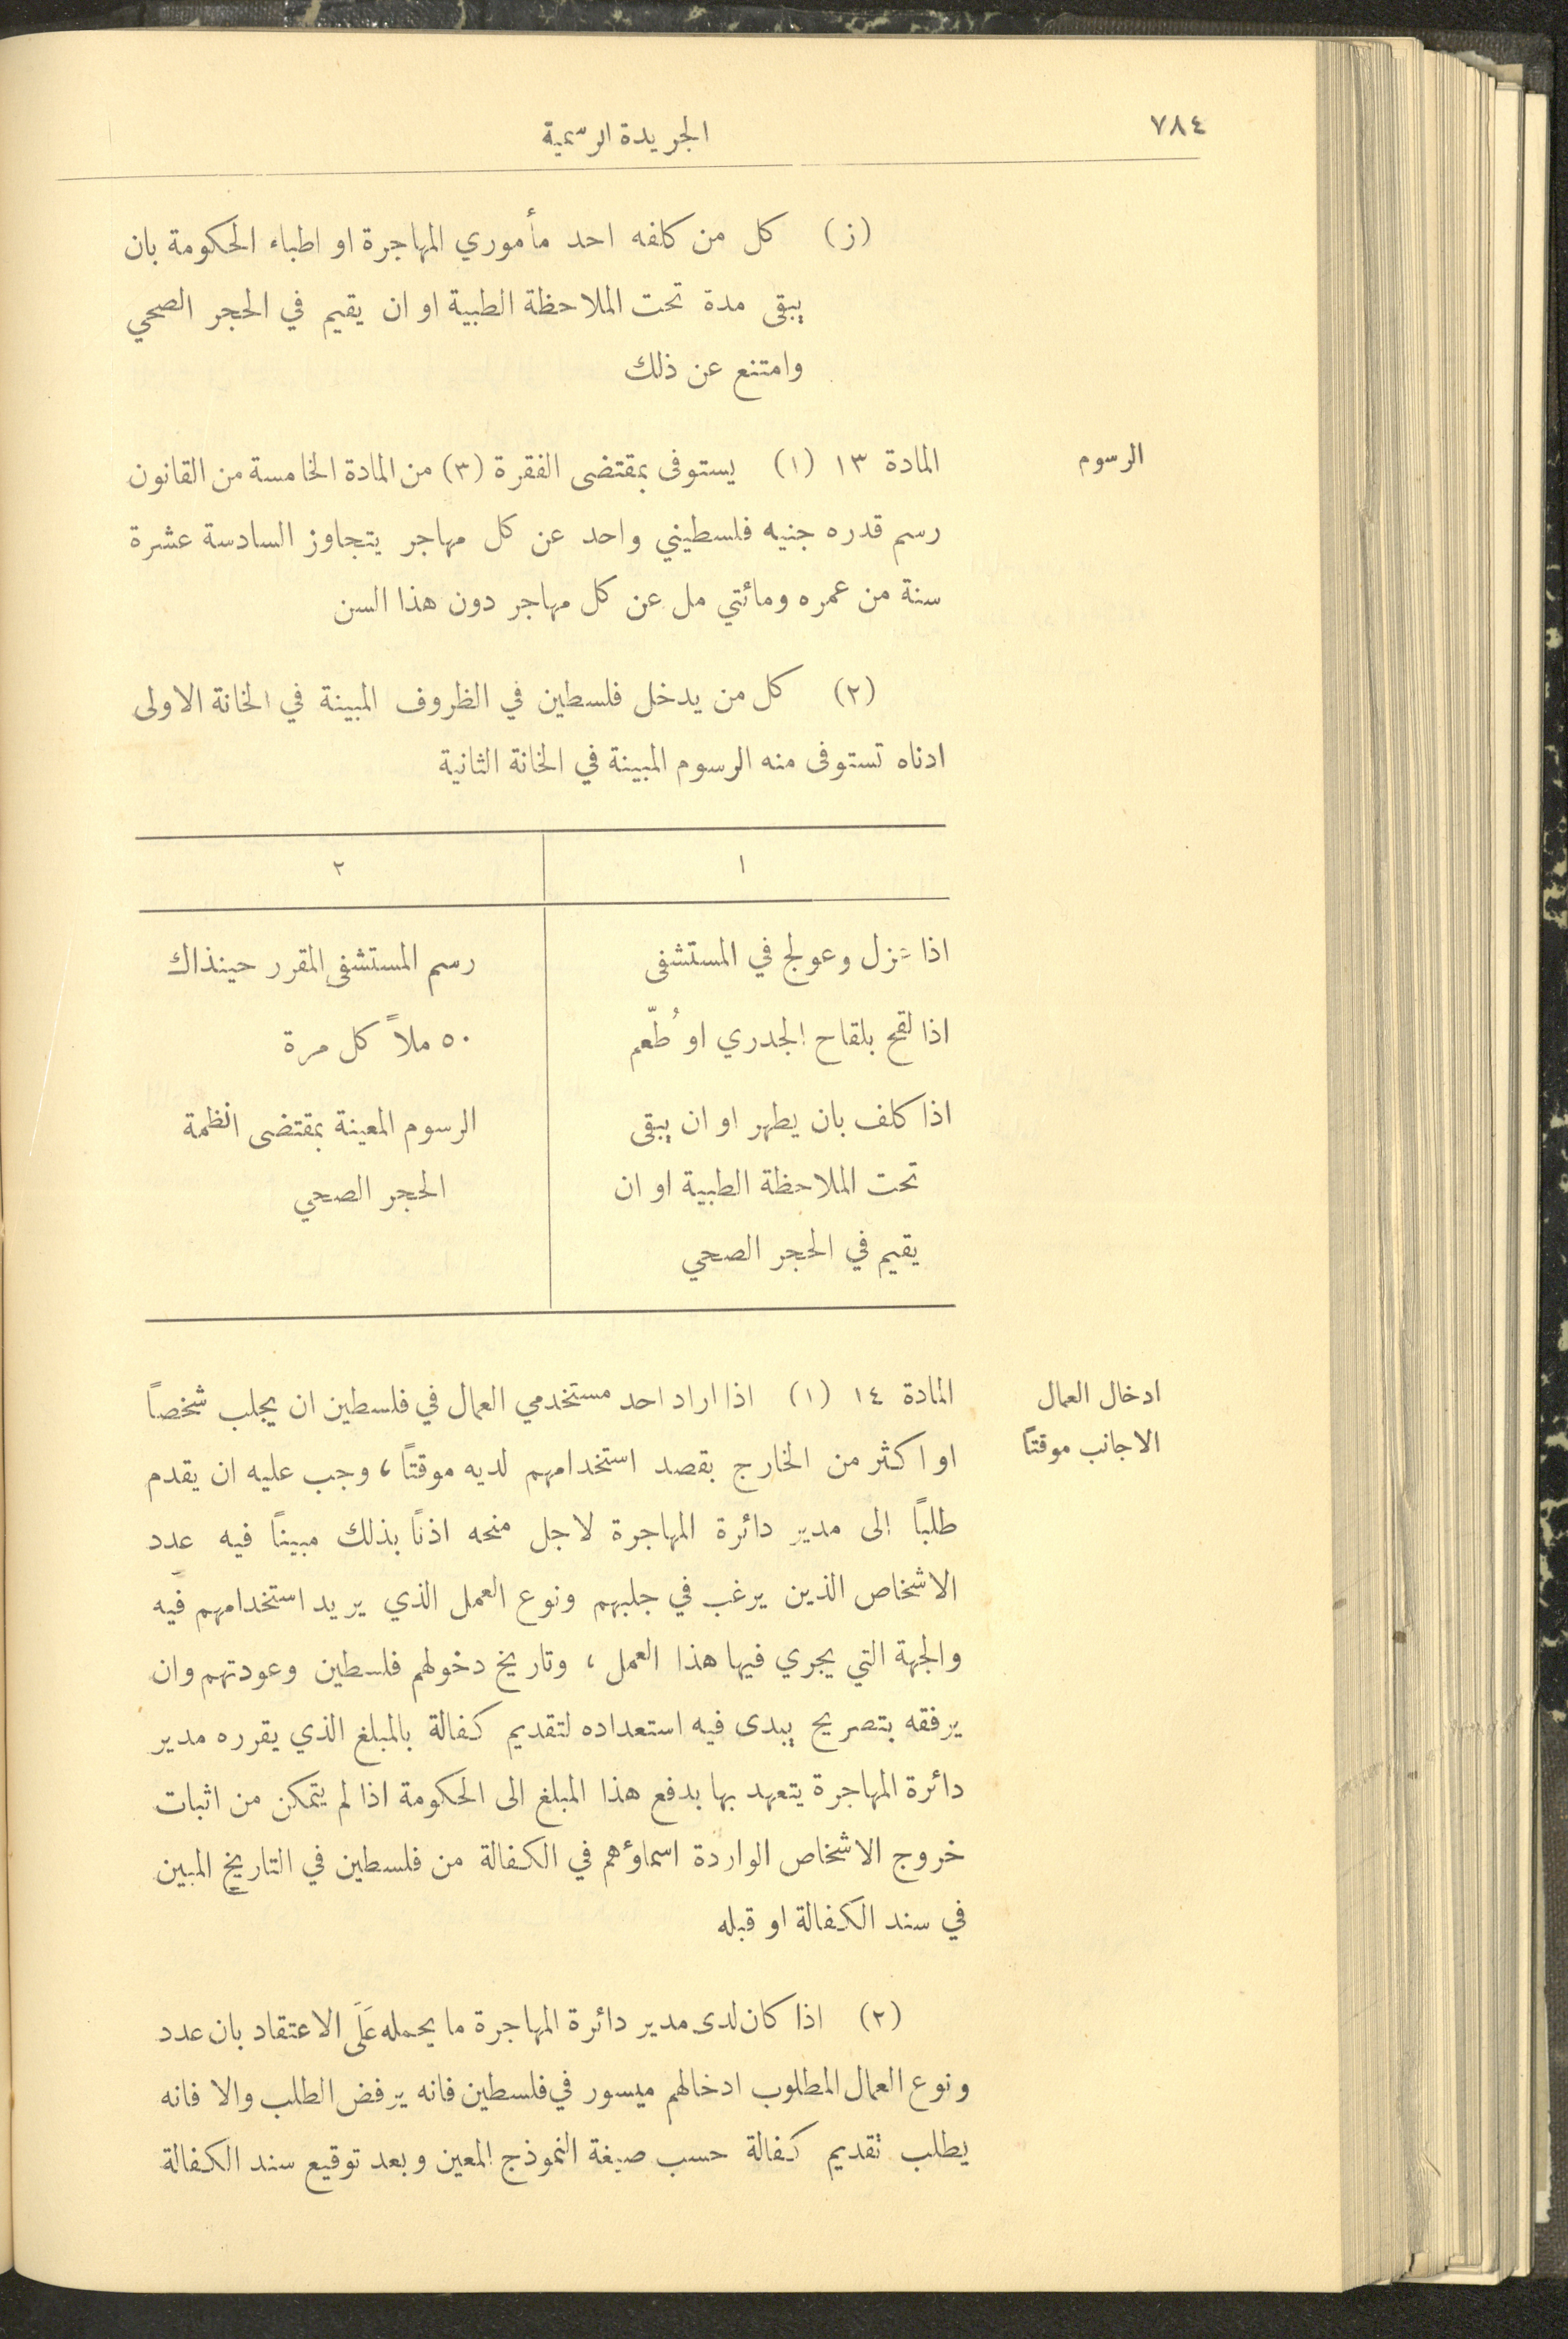 ٧٨٤
الجريدة الرسمية
(ز) كل من كلفه احد مأموري المهاجرة او اطباء الحكومة بان
يبقى مدة تحت الملاحظة الطبية او ان يقيم في الحجر الصحي
وامتنع عن ذلك
الرسوم
المادة ١٣ (١) يستوفى بمقتضى الفقرة (٣) من المادة الخامسة من القانون
رسم قدره جنيه فلسطيني واحد عن كل مهاجر يتجاوز السادسة عشرة
سنة من عمره ومائتي مل عن كل مهاجر دون هذا السن
(٢) كل من يدخل فلسطين في الظروف المبينة في الخانة الاولى
ادناه تستوفى منه الرسوم المبينة في الخانة الثانية
١ ٢
اذا نزل وعولج في المستشفى رسم المستشفى المقرر حينذاك
اذا لقح بلقاح الجدري او طُعّم ٥٠ ملاً كل مرة
اذا كلف بان يطهر او ان يبقى الرسوم المعينة بمقتضى انظمة
تحت الملاحظة الطبية او ان الحجر الصحي
يقيم في الحجر الصحي
ادخال العمال
الاجانب موقتاً
المادة ١٤ (١) اذا اراد احد مستخدمي العمال في فلسطين ان يجلب شخصاً
او اكثر من الخارج بقصد استخدامهم لديه موقتاً، وجب عليه ان يقدم
طلباً الى مدير دائرة المهاجرة لاجل منحه اذناً بذلك مبيناً فيه عدد
الاشخاص الذين يرغب في جلبهم ونوع العمل الذي يريد استخدامهم فيه
والجهة التي يجري فيها هذا العمل، وتاريخ دخولهم فلسطين وعودتهم وان
يرفقه بتصريح يبدى فيه استعداده لتقديم كفالة بالمبلغ الذي يقرره مدير
دائرة المهاجرة يتعهد بها بدفع هذا المبلغ الى الحكومة اذا لم يتمكن من اثبات
خروج الاشخاص الواردة اسماؤهم في الكفالة من فلسطين في التاريخ المبين
في سند الكفالة او قبله
(٢) اذا كان لدى مدير دائرة المهاجرة ما يحمله عَلَى الاعتقاد بان عدد
ونوع العمال المطلوب ادخالهم ميسور في فلسطين فانه يرفض الطلب والا فانه
يطلب تقديم كفالة حسب صيغة النموذج المعين وبعد توقيع سند الكفالة